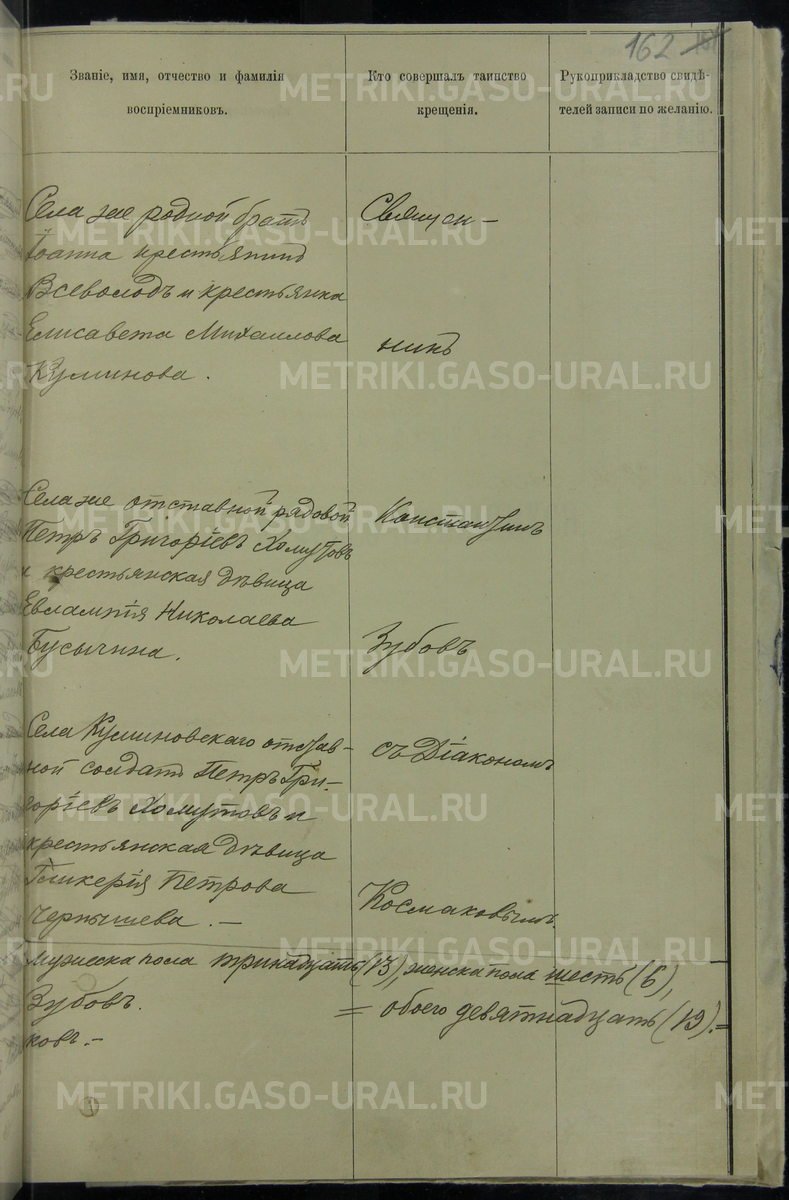 162
Званіе, имя, отчество и фамилія
воспріемниковъ.
Кто совершалъ таинство
крещенія.
Рукоприкладство свидѣ-
телей записи по желанію.
Села же родной братъ
Іоанна крестьянинъ
Всеволодъ и крестьянка
Елисавета Михаилова
Куминова.
Села же отставной рядовой
Петръ Григоріевъ Хомутовъ
и крестьянская дѣвица
Евлампія Николаева
Бусычина.
Села Куминовскаго отстав-
ной солдатъ Петръ Гри-
горіевъ Хомутовъ и
крестьянская дѣвица
Гликерія Петрова
Чернышева. —
Священ-
никъ
Константинъ
Зубовъ
съ Діакономъ
Космаковымъ.
мужеска пола тринадцать (13), женска пола шесть (6),
Зубовъ. = обоего девятнадцать (19). =
ковъ. -
METRIKI.GASO-URAL.RU